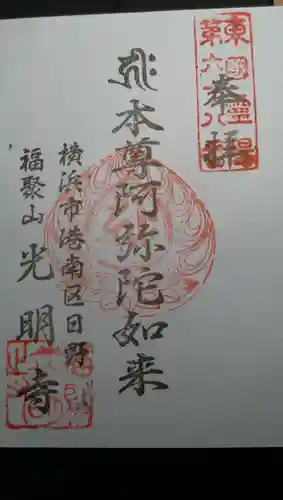 東國霊場
第六八
奉拝
本尊阿弥陀如来
横浜市港南区日野
福聚山 光明寺